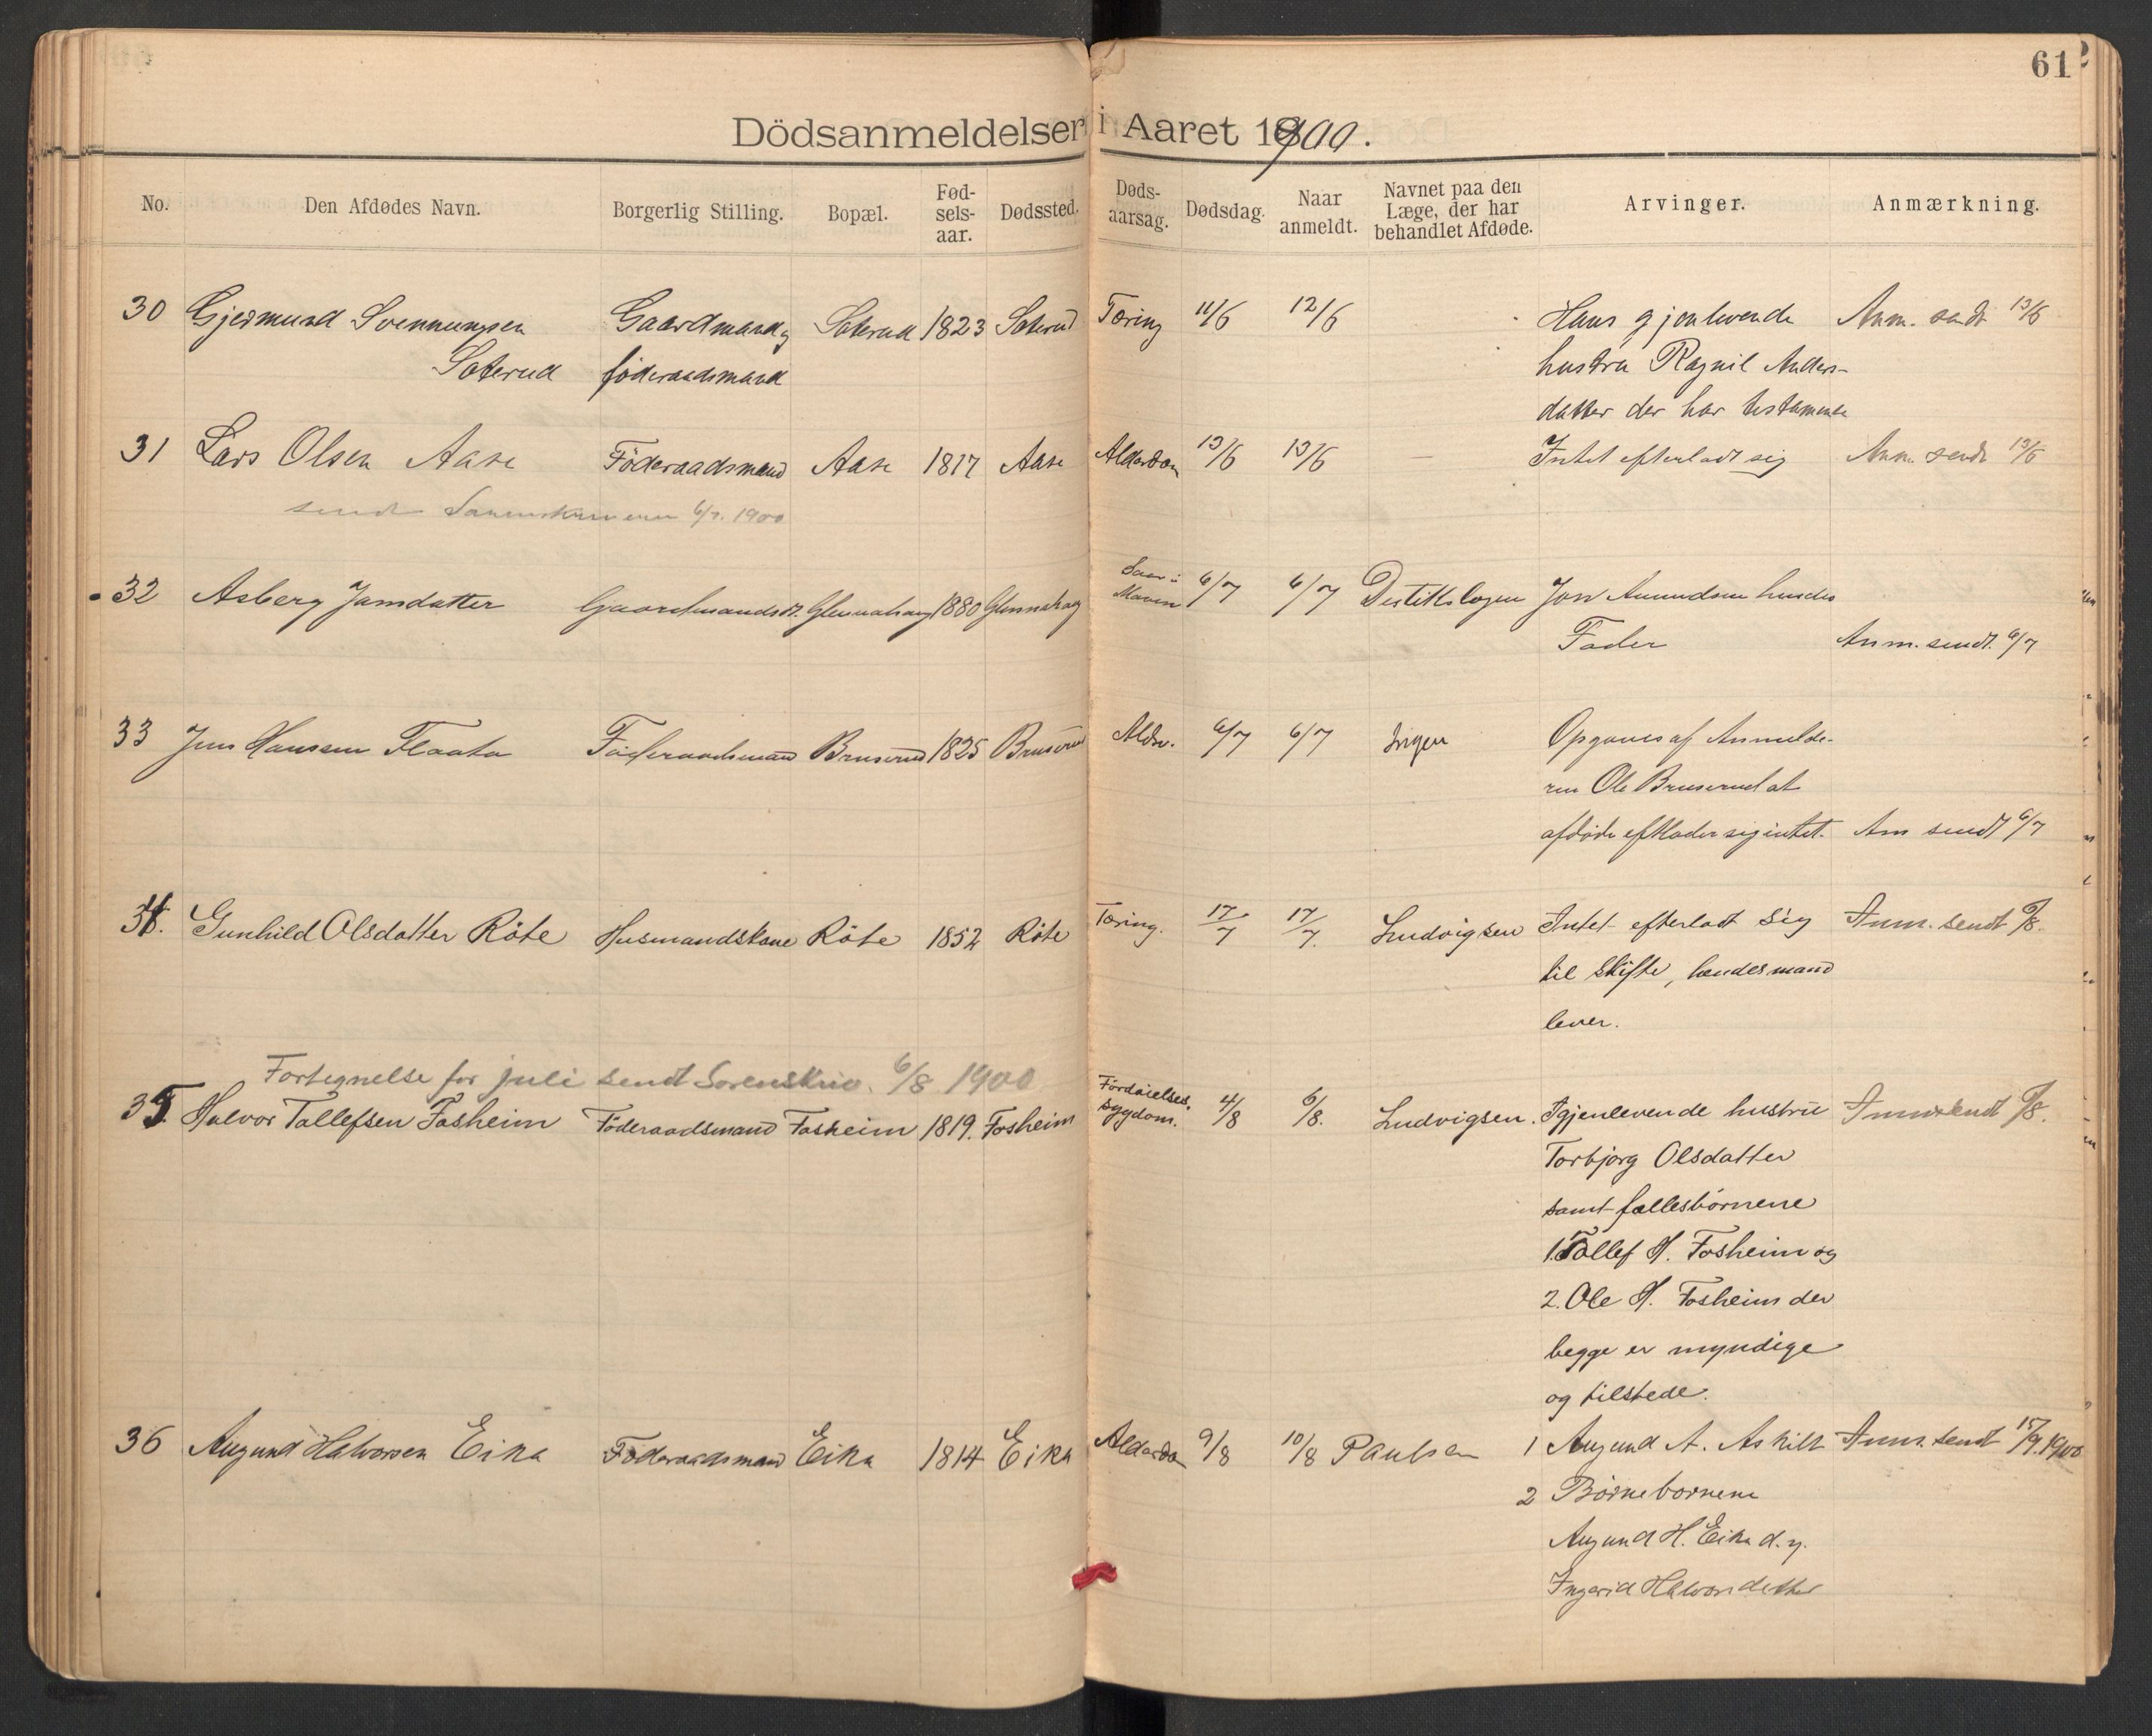 61
Dödsanmeldelser i Aaret 1900.
No. Den Afdødes Navn. Borgerlig Stilling. Bopæl. Fødselsaar. Dødssted. Dødsaarsag. Dødsdag. Naar anmeldt. Navnet paa den Læge, der har behandlet Afdøde. Arvinger. Anmærkning.
30 Gjermund Svennungsen Gaardmand og Saterud 1823 Saterud Tæring 11/6 12/6 Hans gjenlevende Anm. sendt 13/6
Saterud føderaadsmand hustru Ragnil Anders-
datter der har testamente
31 Lars Olsen Aase Föderaadsmand Aase 1817 Aase Alderdom 13/6 13/6 — Intet efterladt sig Anm. sendt 13/6
sendt Sorenskriveren 6/7. 1900
32 Asberg Jonsdatter Gaardmandsdt. 1880 Saar i Maven 6/7 6/7 Jon Amundsen hendes
Fader Anm. sendt. 6/7
33 Jens Hansen Flaata Föderaadsmand Bruserud 1825 Bruserud Alder. 6/7 6/7 Ingen Opgaves af Anmelde-
ren Ole Bruserud at
afdøde efterlader sig intet. Anm sendt 6/7
34. Gunhild Olsdatter Röte Husmandskone Röte 1852 Röte Tæring. 17/7 17/7. Ludvigsen Intet efterladt sig Anm. sendt 6/8.
til skifte, hendes mand
lever.
Fortegnelse for juli sendt Sorenskriv. 6/8 1900
35. Halvor Tallefsen Fosheim Föderaadsmand Fosheim 1819. Fosheim Fordøielses. sygdom. 4/8 6/8. Ludvigsen. Igjenlevende hustru Anm. sendt 6/8.
Torbjørg Olsdatter
samt fællesbørnene
1. Tallef H. Fosheim og
2. Ole H. Fosheim der
begge er myndige
og tilstede.
36 Augund Halvorsen Eika Föderaadsmand Eika 1814 Eika Alderdom 9/8 10/8 Paulsen 1 Augund A. Askilt Anm. sendt 15/9.1900
2 Börnebornene
Augund H. Eika d. y.
Ingerid Halvorsdatter